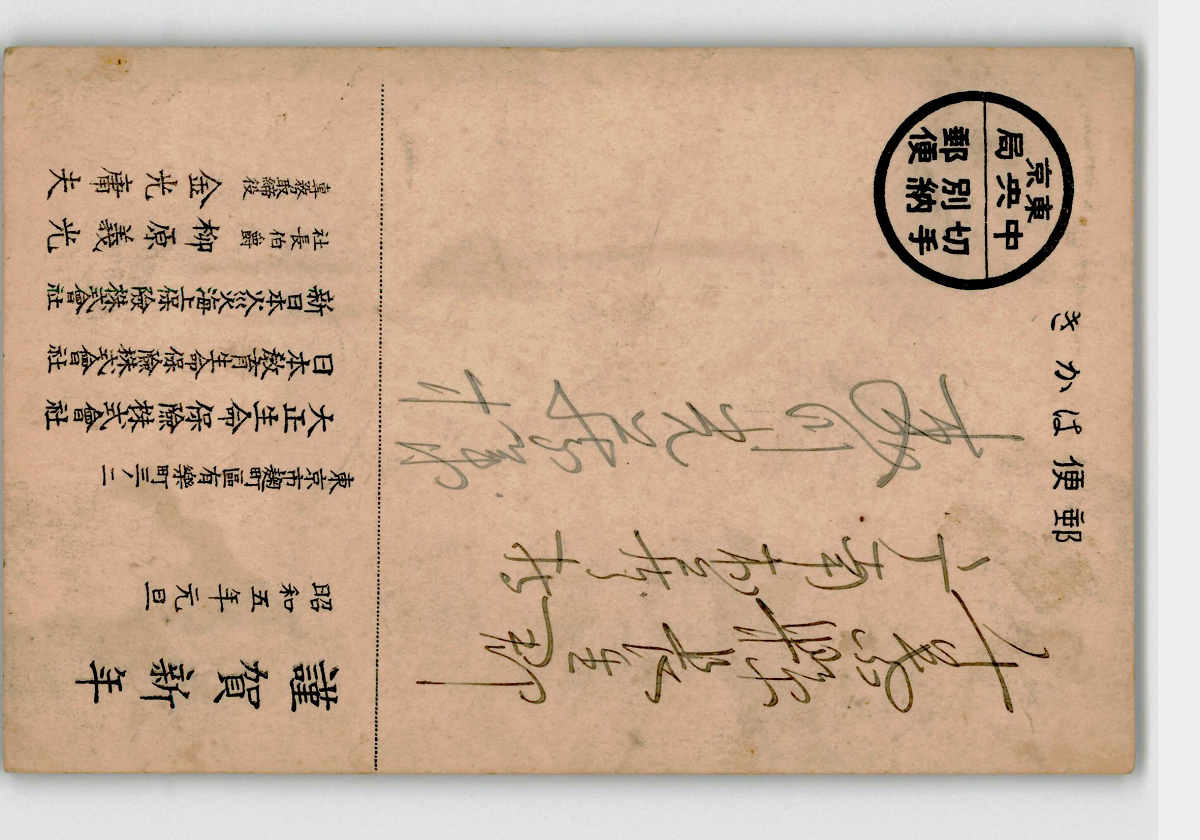 郵便はかき
東京
中央局
切手別納郵便
千葉縣長生郡
謹賀新年
昭和五年元旦
東京市麹町區有樂町三ノ二
大正生命保險株式會社
日本敎育生命保險株式會社
新日本火災海上保險株式會社
社長伯爵 柳原義光
專務取締役 金光庸夫